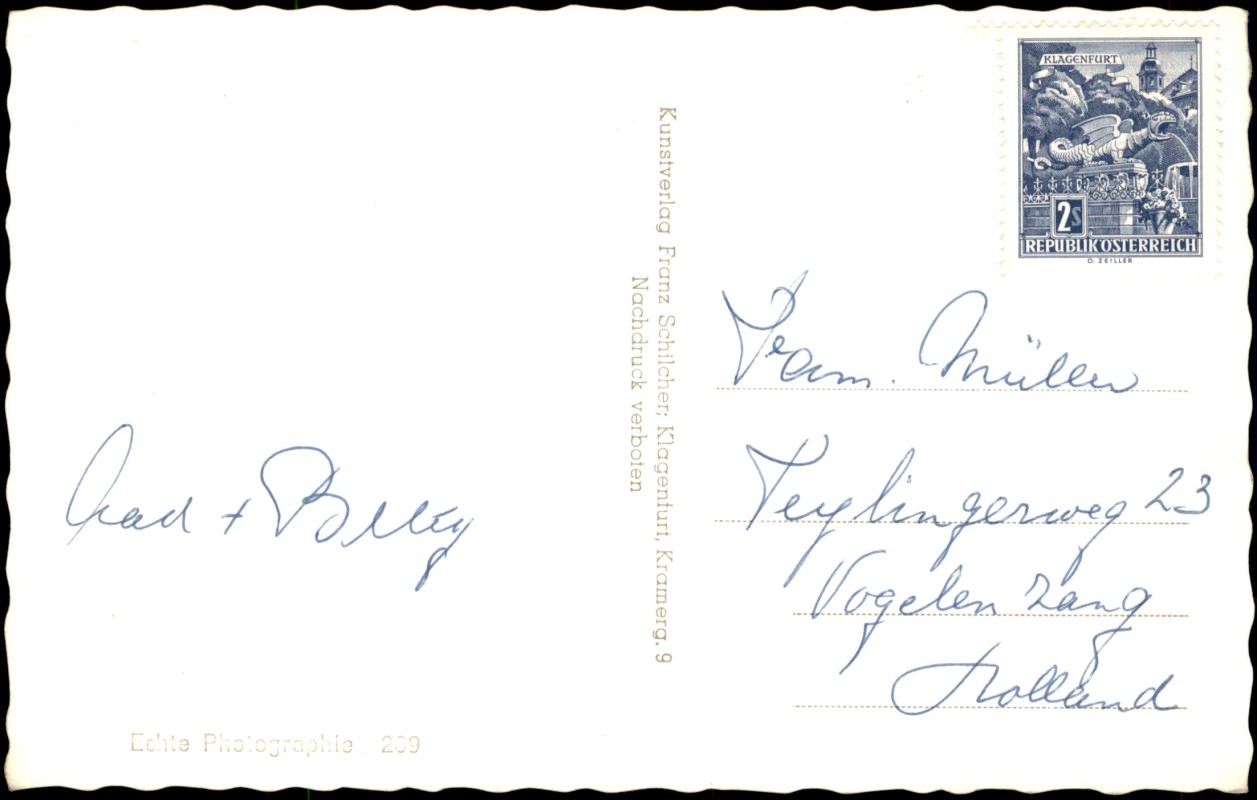 + Betty
Echte Photographie 289
Kunstverlag Franz Schilcher; Klagenfurt, Kramerg. 9
Nachdruck verboten
KLAGENFURT
2S
REPUBLIK ÖSTERREICH
O. ZEILLER
Fam. Müller
Teylingerweg 23
Vogelenzang
Holland